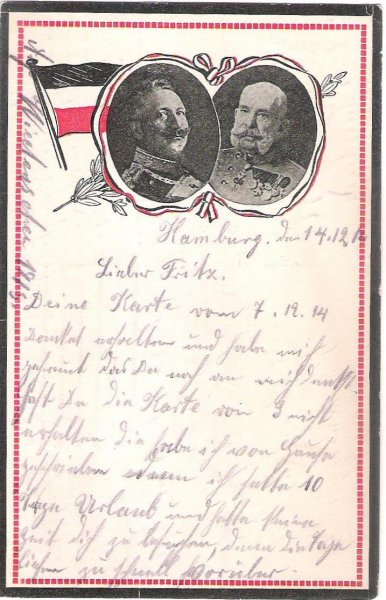 Hamburg, den 14.12.14
Lieber Fritz.
Deine Karte vom 7.12.14
Dankend erhalten und habe mich
gefreut das Du noch an mich denkst
hast Du die Karte von 8 nicht
erhalten die habe ich von Hause
geschrieben ich hatte 10
Tage Urlaub und hatte keine
Zeit dich zu besuchen, denn die Tage
zu schnell vorüber.